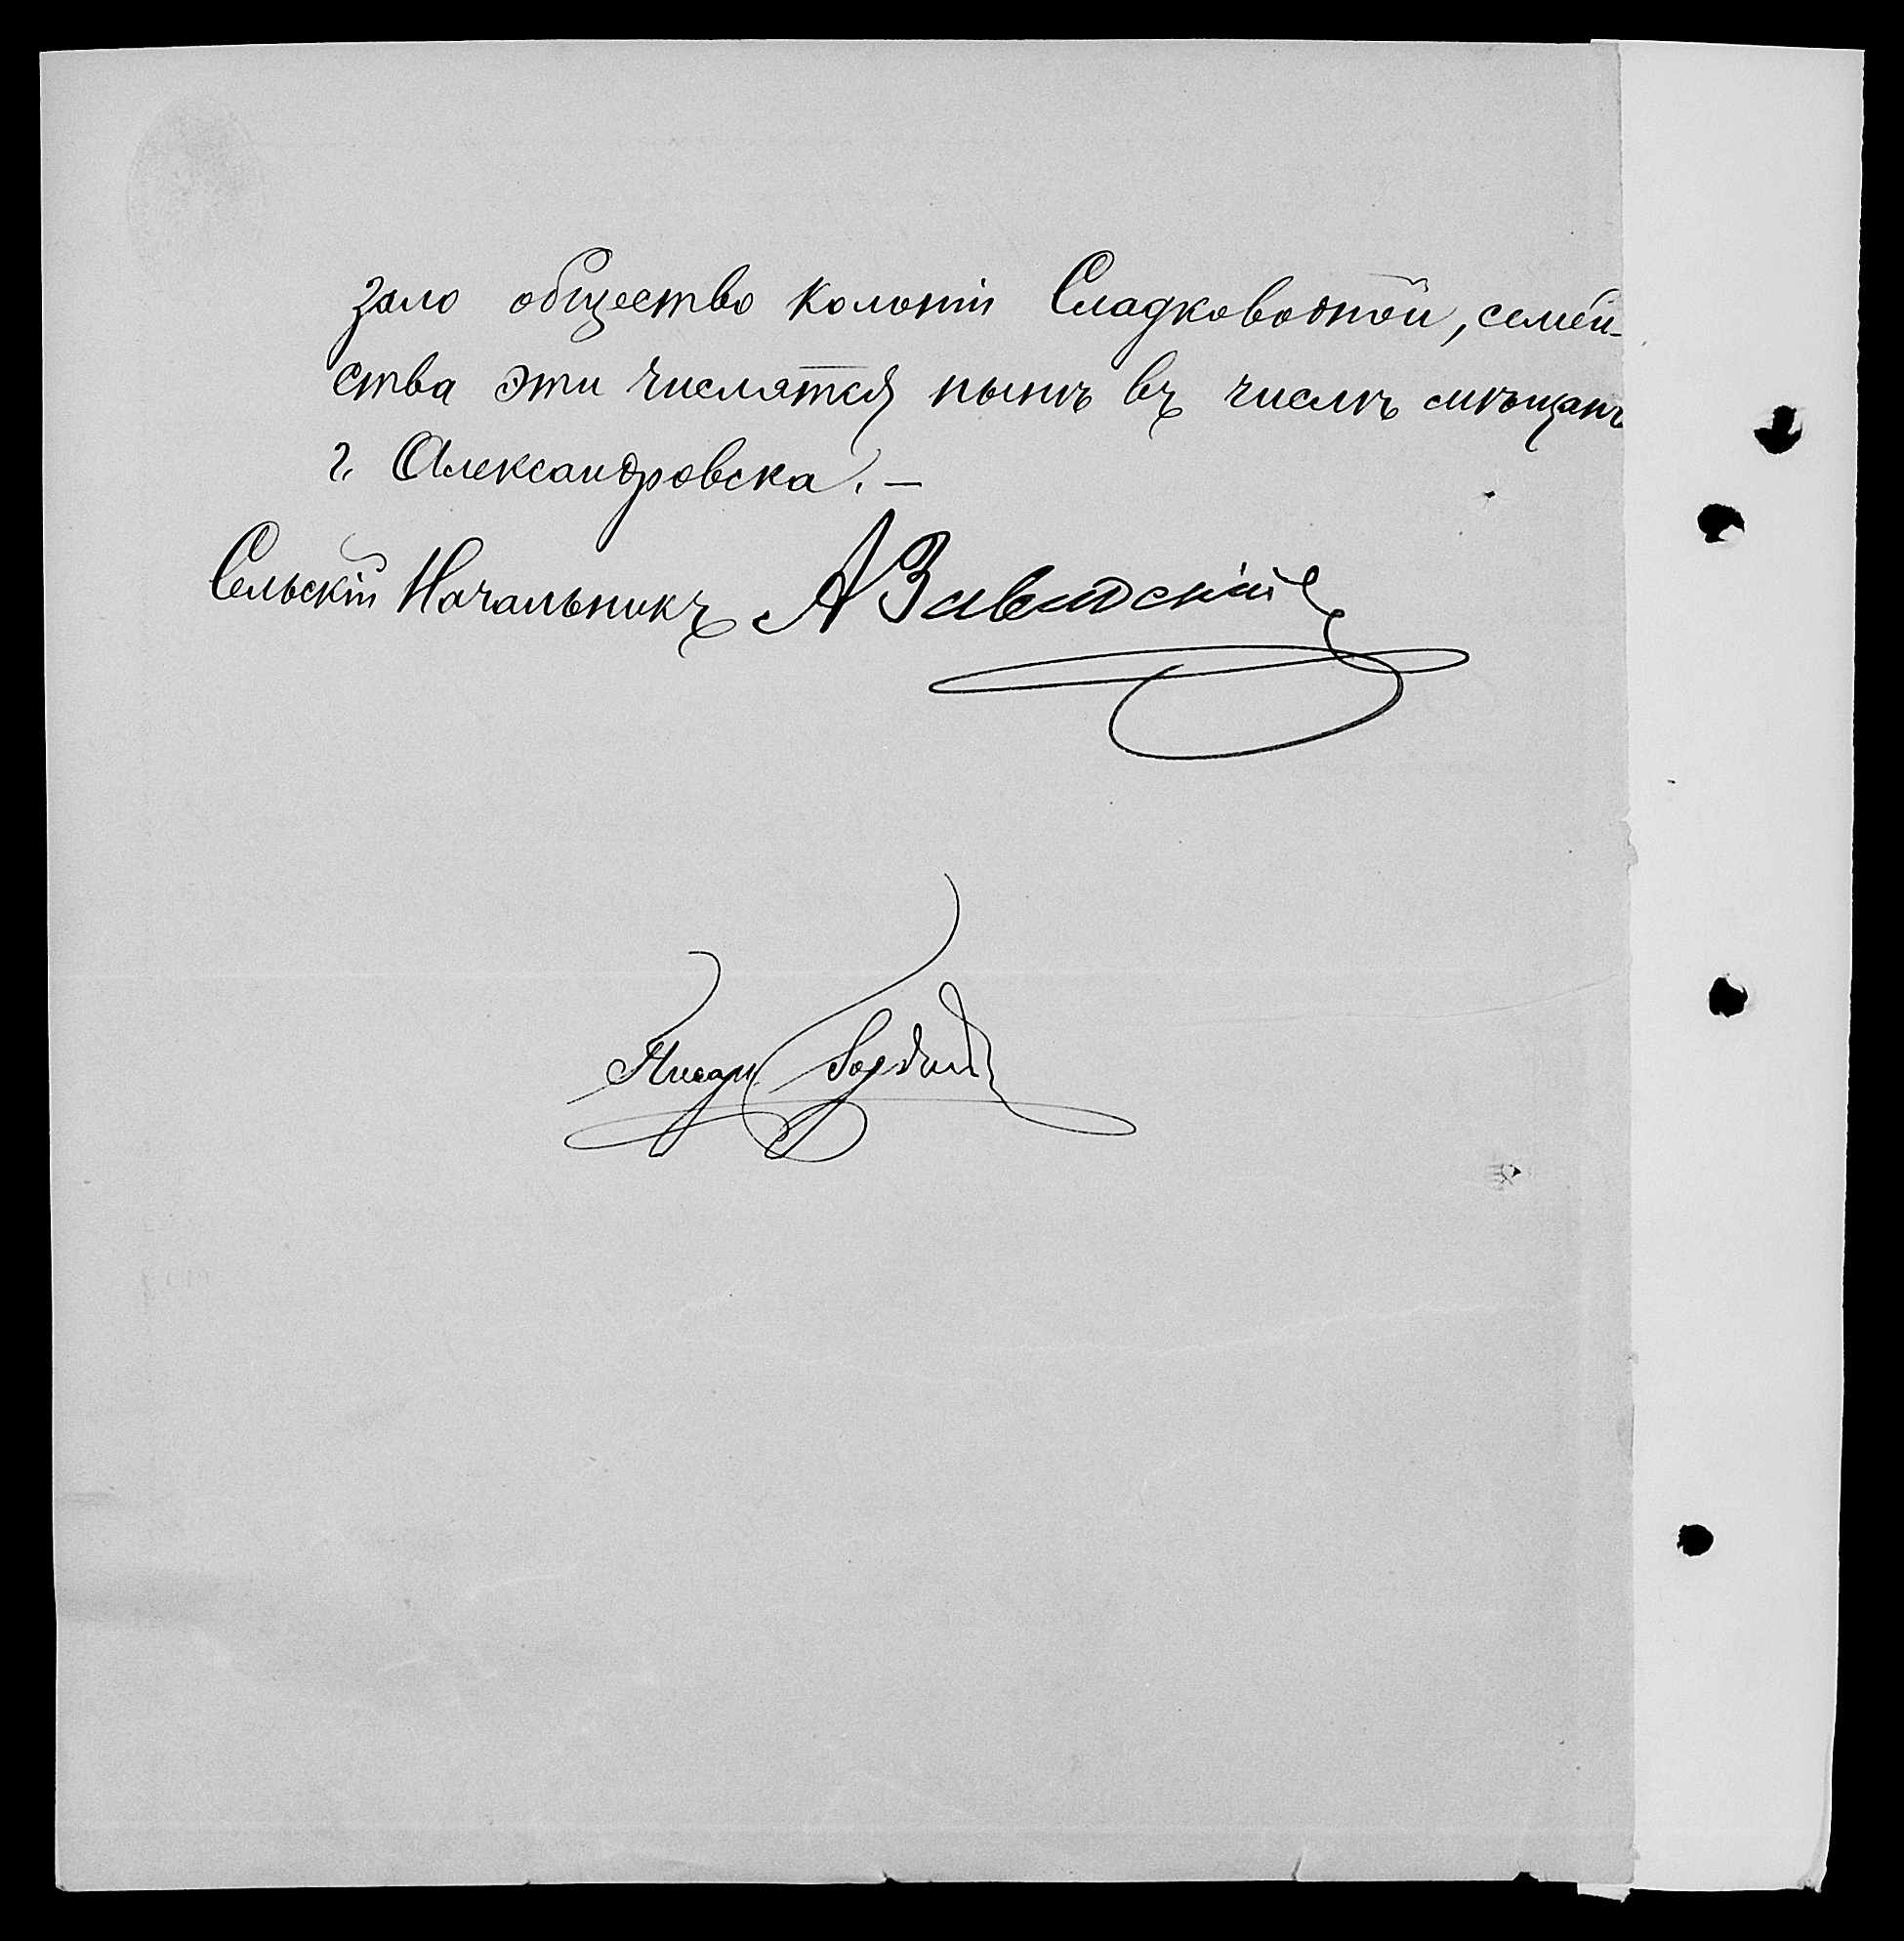 зало общество колонiи Сладководной, семей-
ства эти числятся нынѣ въ числѣ мѣщанъ
г. Александровска. —
Сельскiй Начальникъ А Завадскiй
Писарь